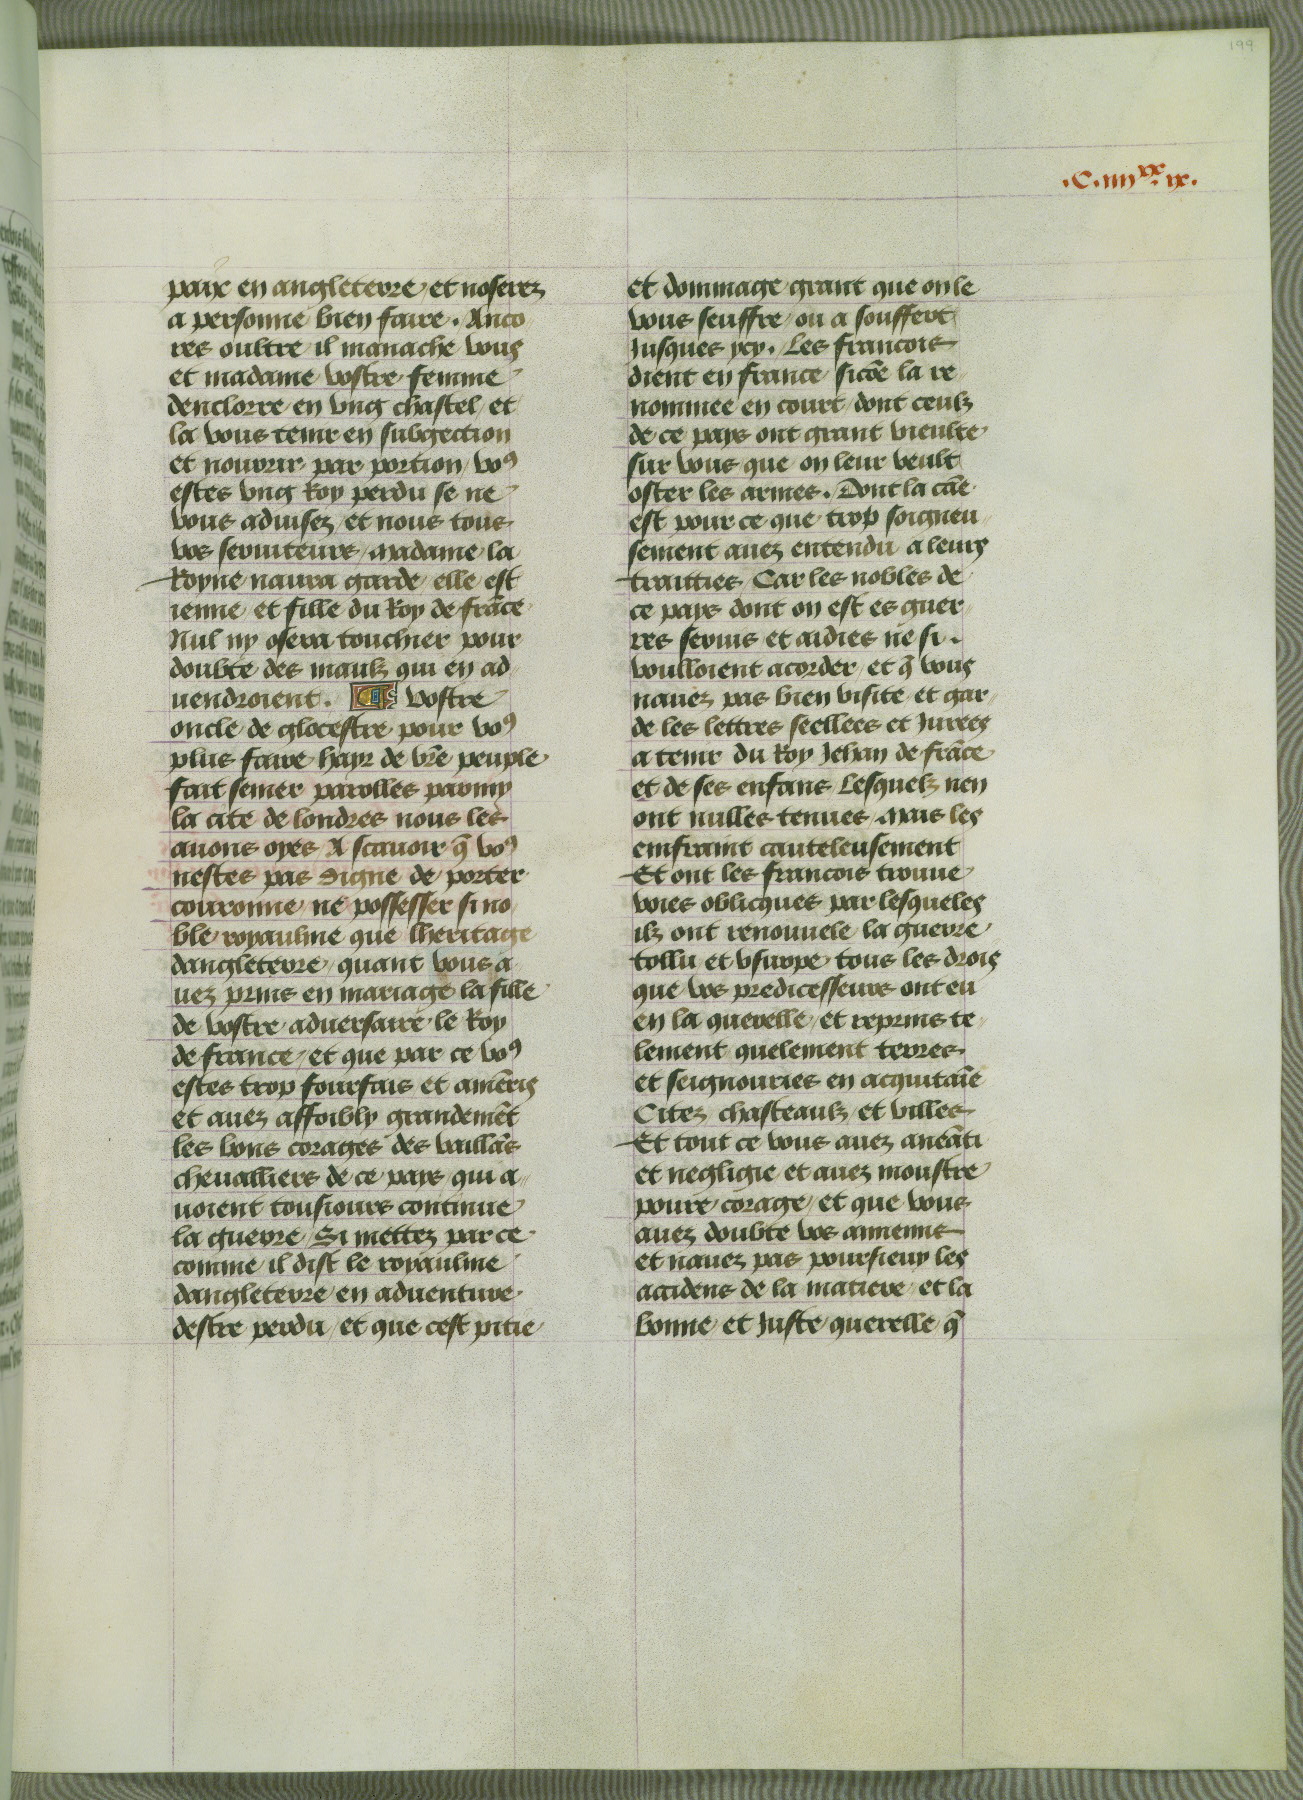 199
.C.iiii^xx.ix.
paix en angleterre et noserez
a personne bien faire. Anco
res oultre il manache vous
et madame vostre femme
denclorre en vng chastel et
la vous tenir en subgection
et nourrir par portion voꝰ
estes vng Roy perdu se ne
vous aduisez et nous tous
vos seruiteurs Madame la
Royne naura garde elle est
ienne et fille du Roy de frāce
Nul ny osera touchier pour
doubte des maulz qui en ad
uendroient. Et vostre
oncle de glocestre pour voꝰ
plus faire hayr de vr̄e peuple
fait semer parolles parmy
la cite de londres nous les
auons oyes A scauoir q̄ voꝰ
nestes pas digne de porter
couronne ne possesser si no
ble royaulme que lheritage
dangleterre quant vous a
uez prins en mariage la fille
de vostre aduersaire le Roy
de france et que par ce voꝰ
estes trop fourfais et amēris
et auez affoibly grandemēt
les bons corages des vaillās
cheualliers de ce pays qui a
uoient tousiours continue
la guerre Si mettez par ce
comme il dist le royaulme
dangleterre en aduenture
destre perdu et que cest pitie
et dommage grant que on le
vous seuffre ou a souffert
Jusques ycy. Les francois
dient en france sicōe la re
nommee en court dont ceulz
de ce pays ont grant vieulte
sur vous que on leur veult
oster les armes. Dont la cāe
est pour ce que trop soigneu
sement auez entendu a leurs
traitties Car les nobles de
ce pays dont on est es guer
res seruis et aidies ne si.
voulloient acorder et q̄ vous
nauez pas bien visite et gar
de les lettres seellees et Jurees
a tenir du Roy Jehan de frāce
et de ses enfans Lesquelz nen
ont nulles tenues Mais les
emfraint cauteleusement
Et ont les francois trouue
voies oblicques par lesqueles
ilz ont renouuele la guerre
tollu et vsurpe tous les drois
que vos predicesseurs ont eu
en la querelle et reprins te
lement quelement terres
et seignouries en acquitaīe
Citez chasteaulz et villes
Et tout ce vous auez aneāti
et negligie et auez moustre
poure corage et que vous
auez doubte vos annemis
et nauez pas poursieuy les
accidens de la matiere et la
bonne et Juste querelle q̄